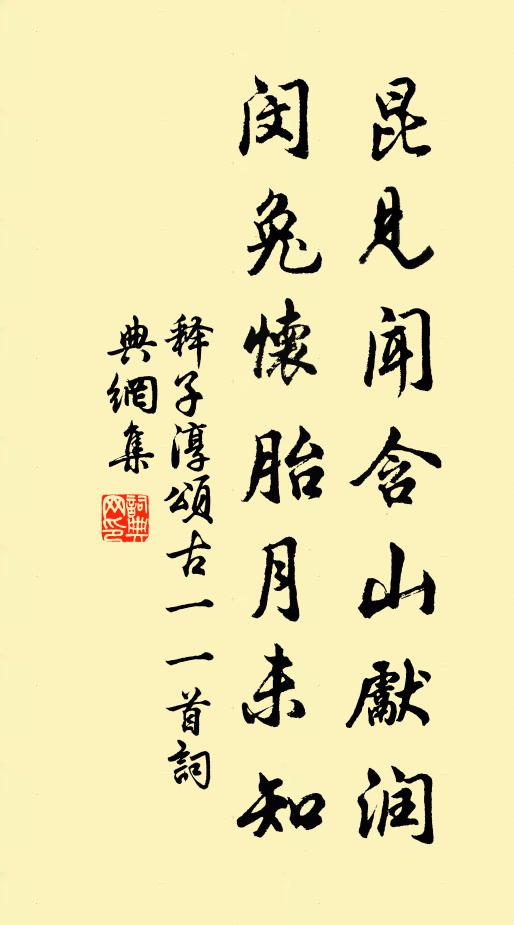 昆見闻含山獻润
闵兔懷胎月未知
释子淳頌古一一首詞
典網集
詞典
网印